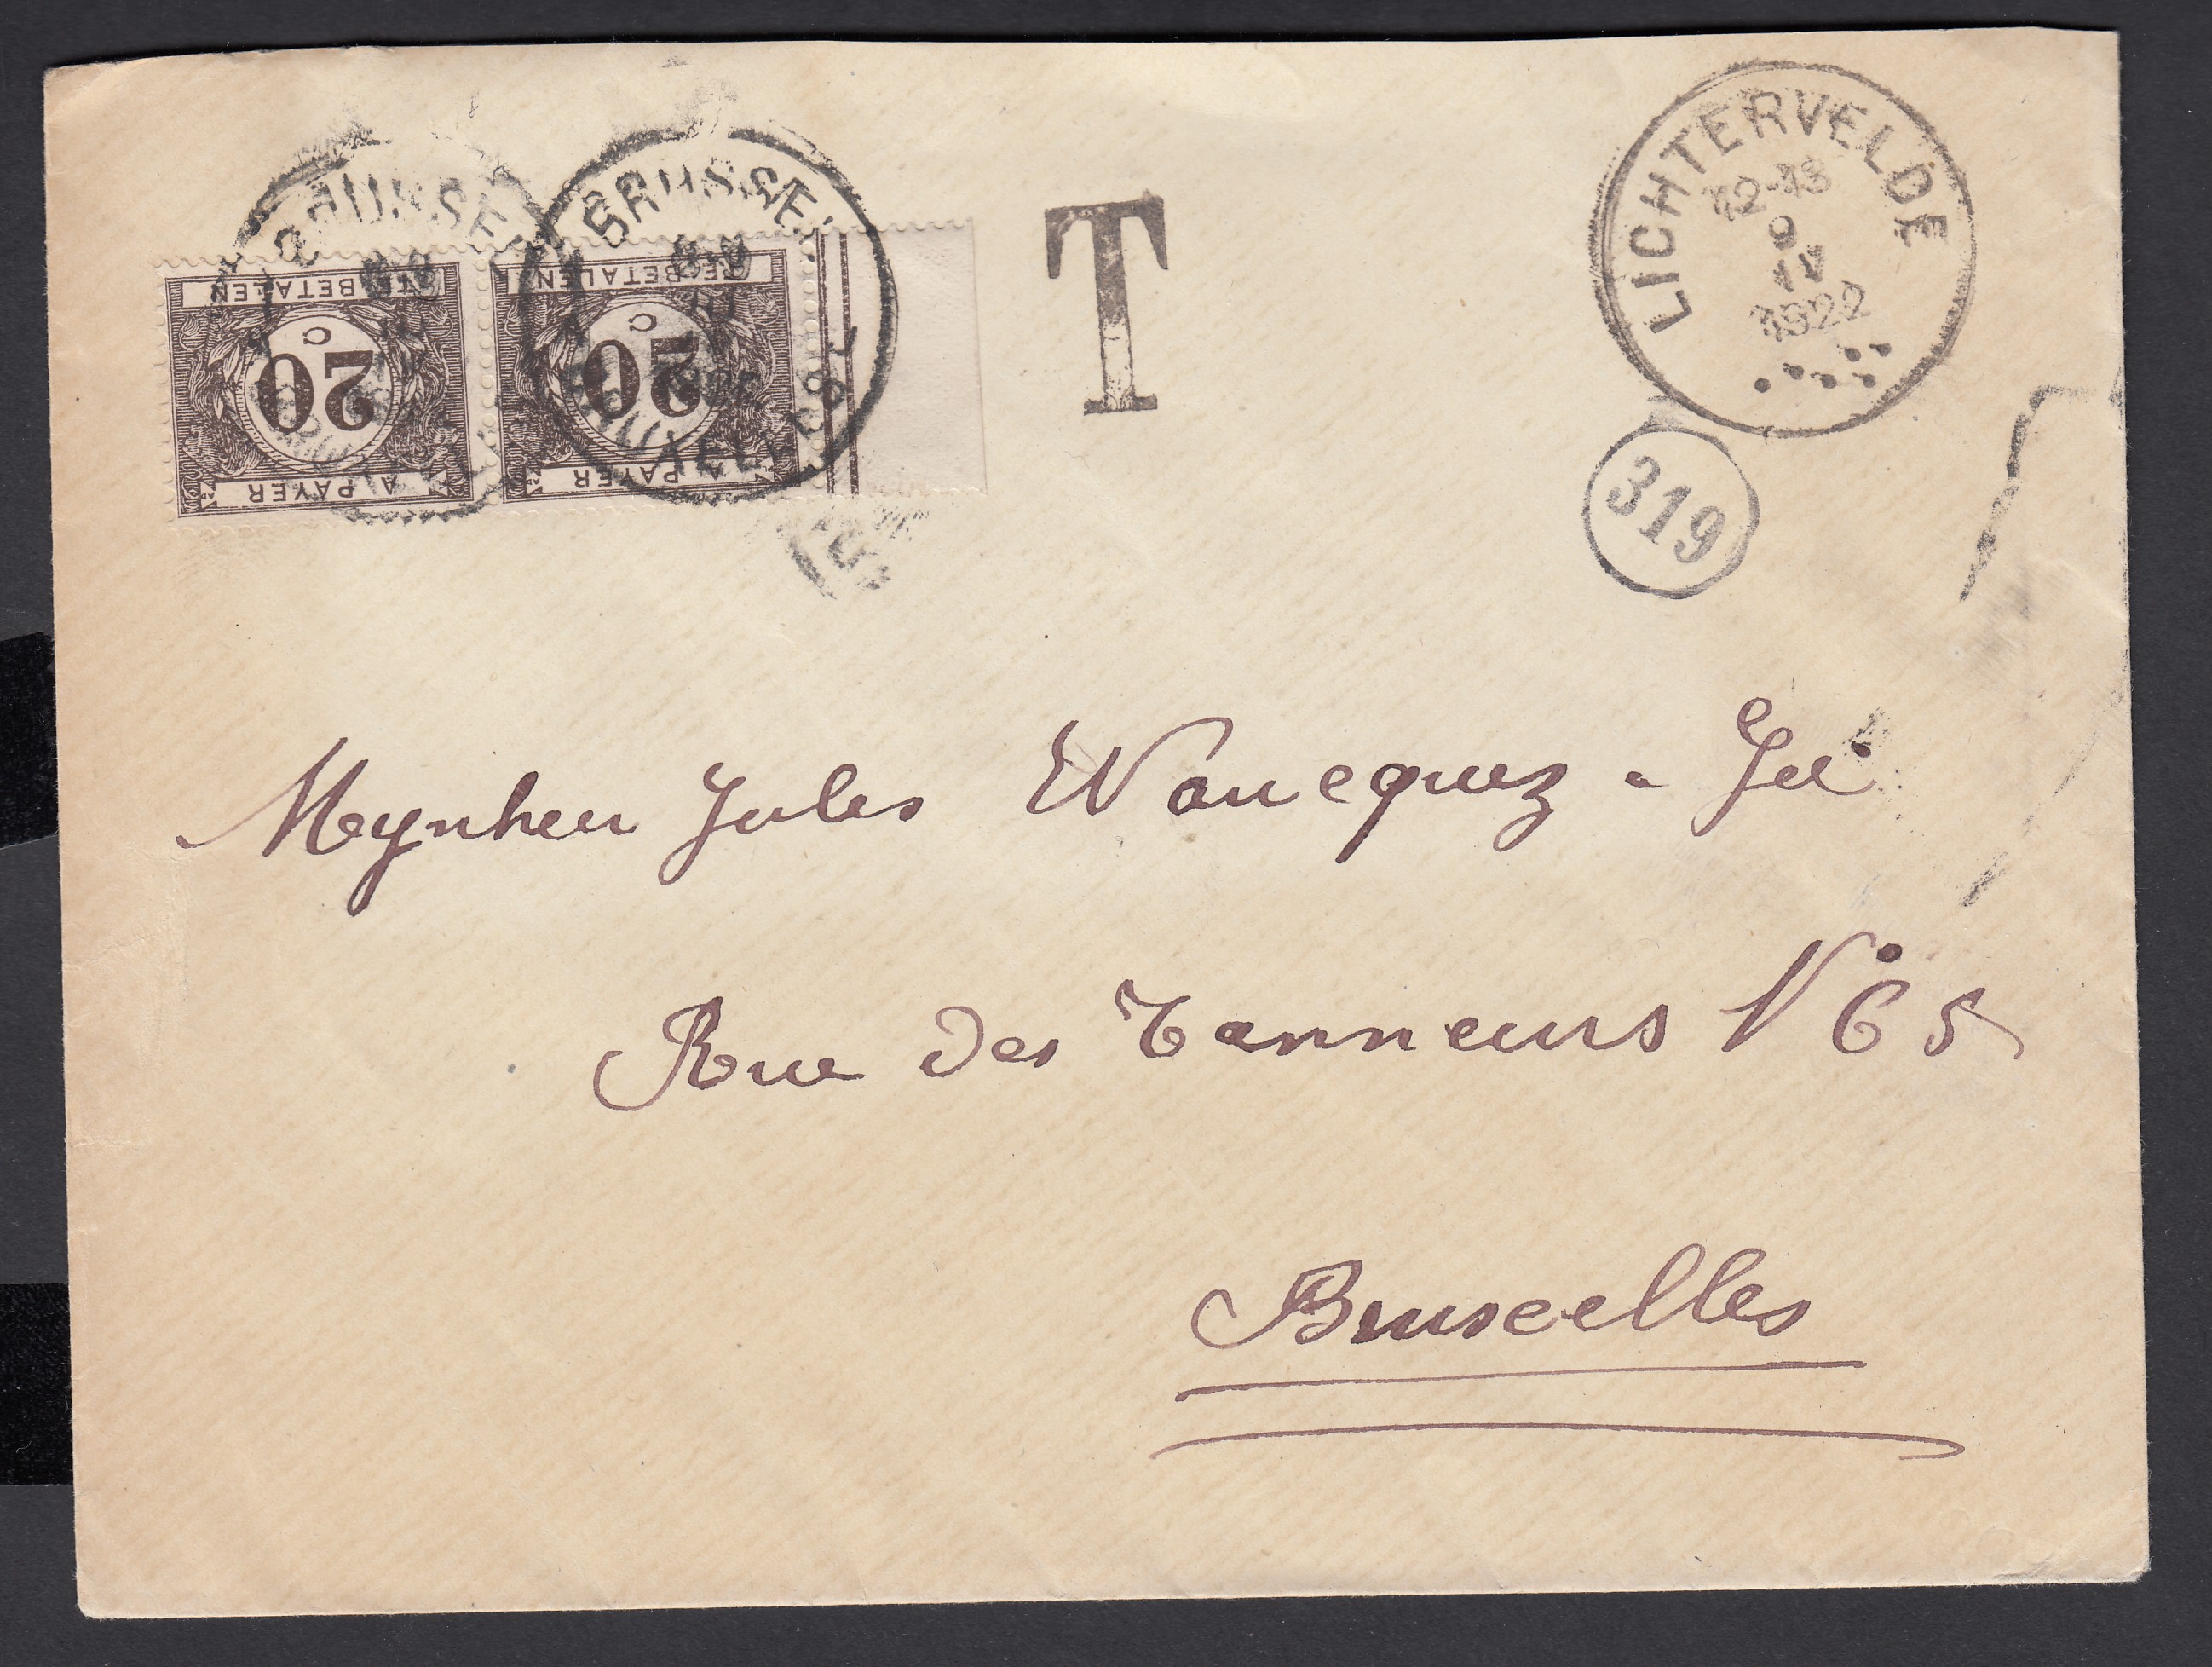 BRUSSEL
BRUSSEL
TE BETALEN
20
C
A PAYER
TE BETALEN
20
C
A PAYER
T
LICHTERVELDE
12-13
9
IV
1922
319
Mynheer Jules
Rue des Tanneurs N° 65
Bruxelles